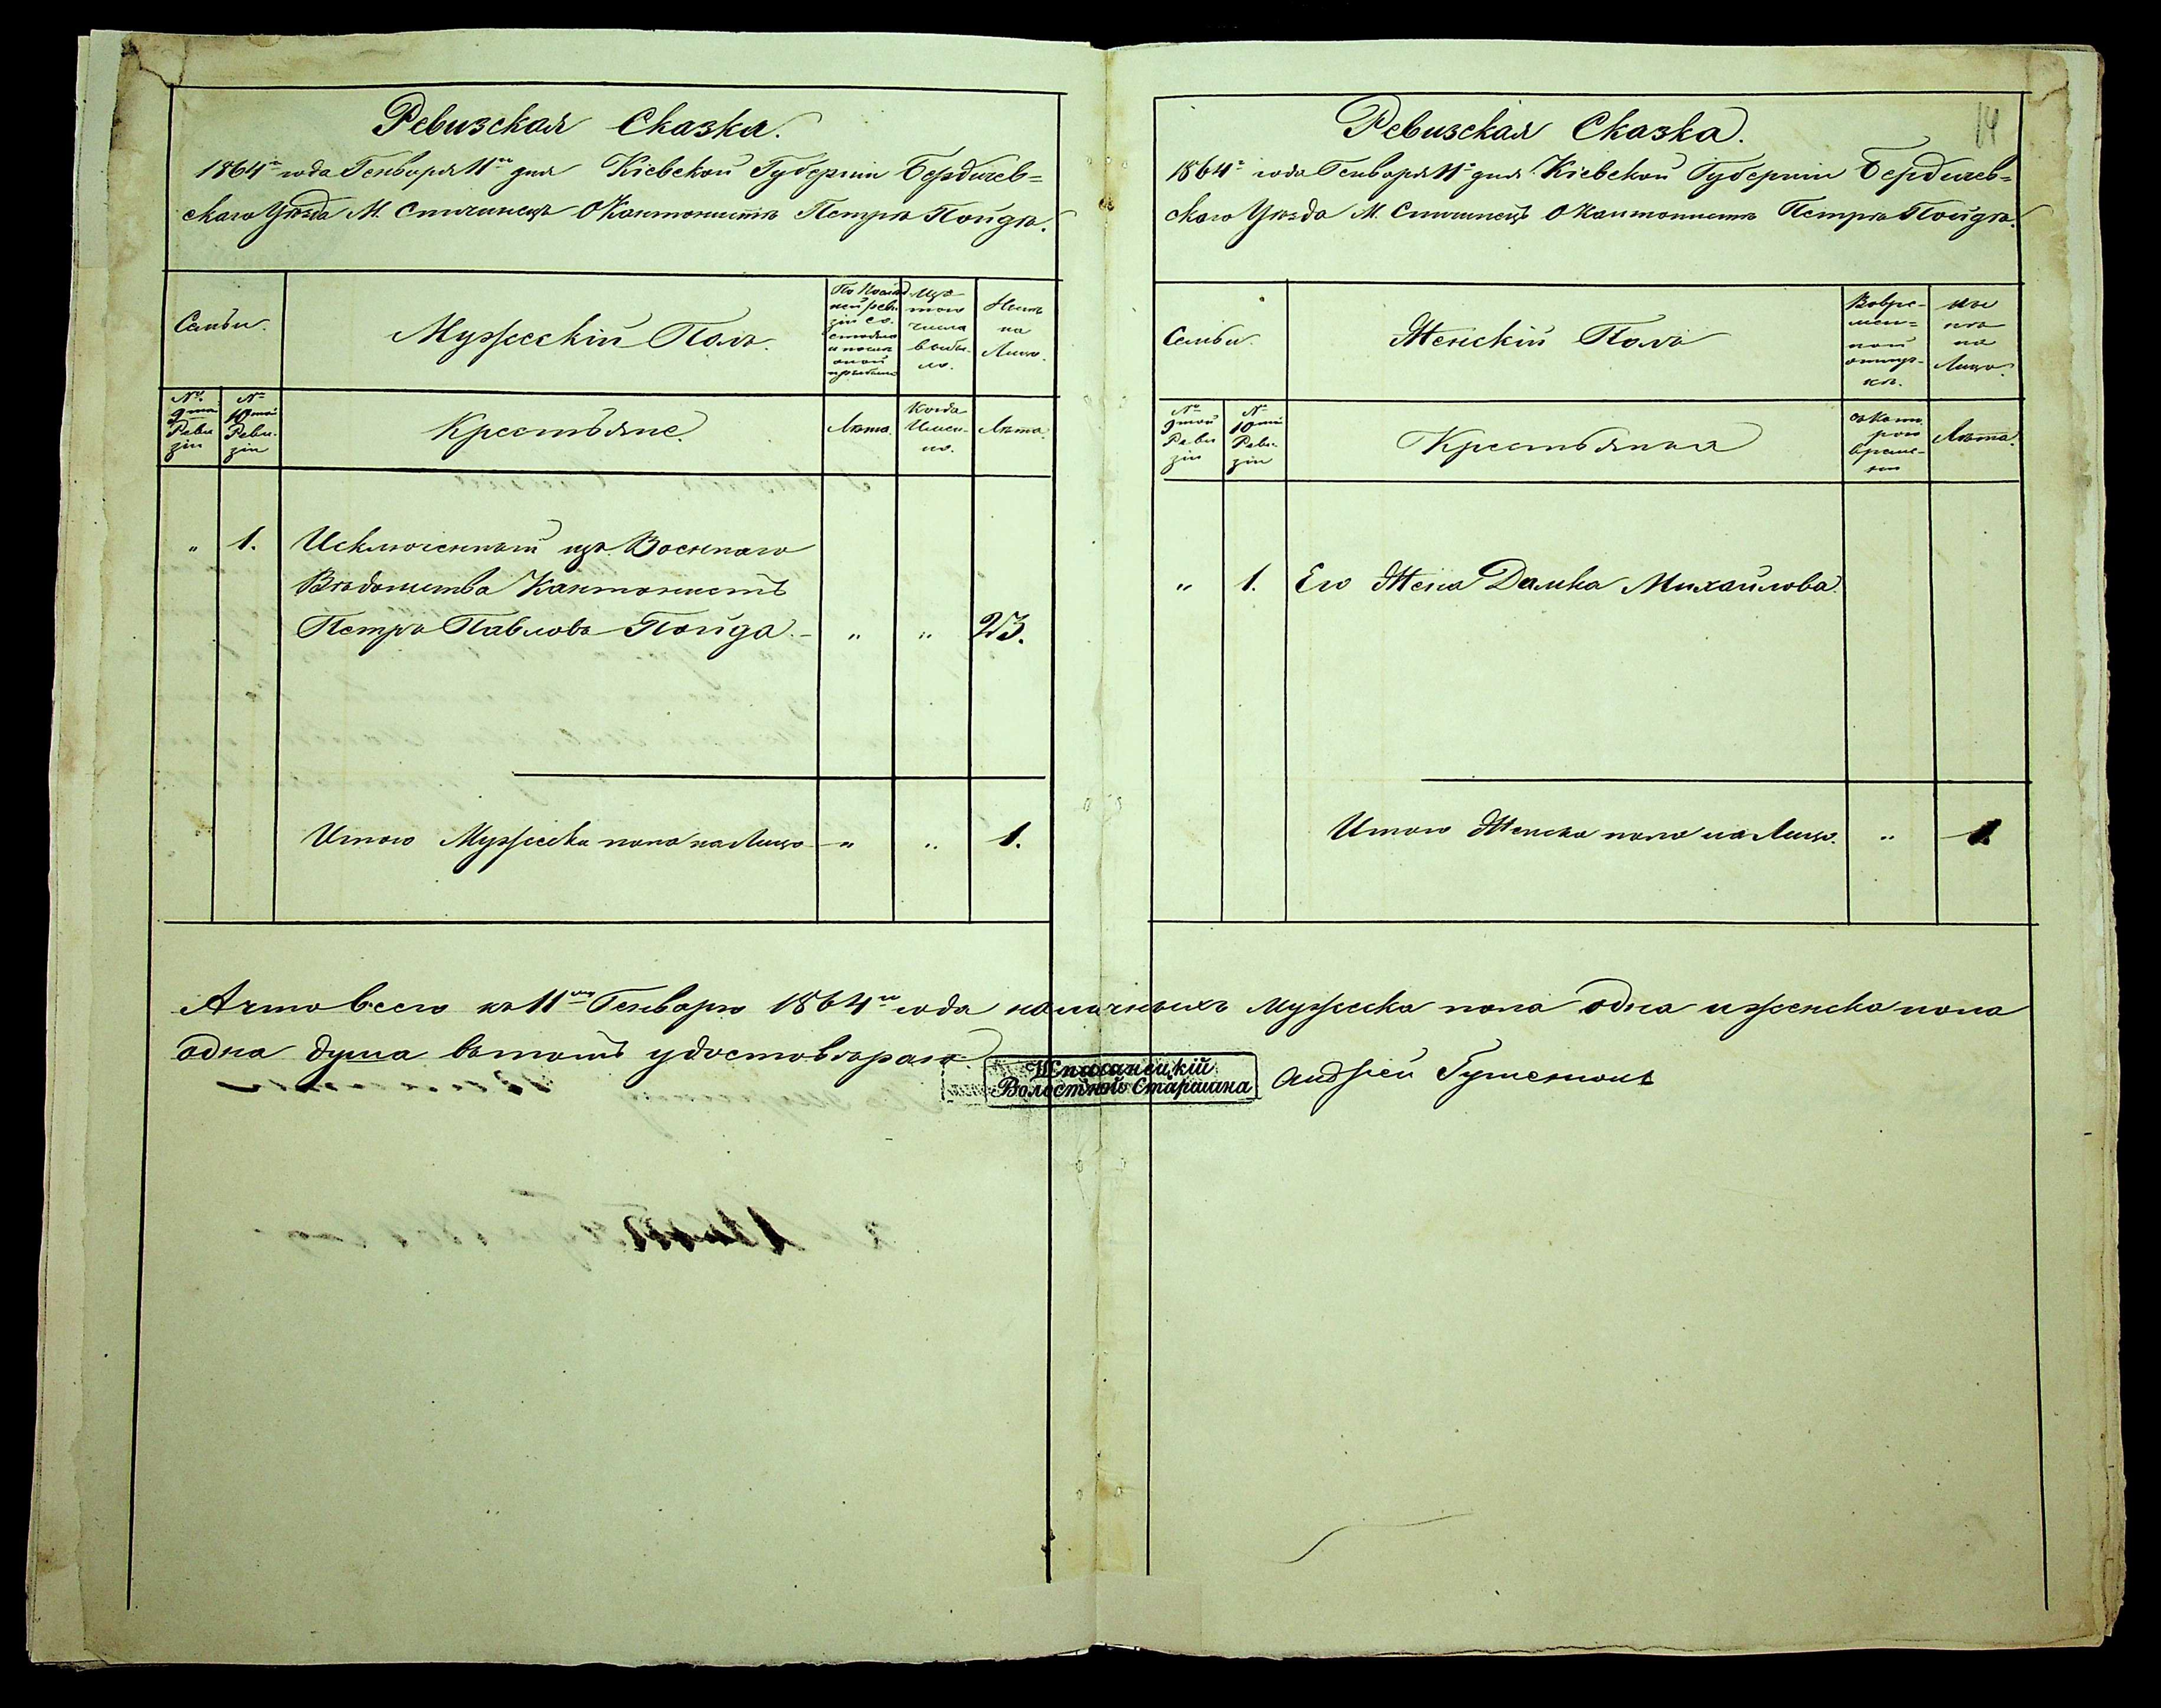 Ревизская Сказка.
1864го года Генваря 11го дня Кіевской Губерніи Бердичев=
скаго Уѣзда М. Спичинецъ О Кантонистѣ Петрѣ Пойдѣ.
Семьи.
Мужескій Полъ.
Изъ
того
числа
выбы-
ло.
Нынѣ
на
Лицо.
№
9той
Реви
зіи
№
10той
Реви-
зіи
Крестьяне.
Лѣта.
Когда
Имен-
но.
Лѣта.
„ 1. Исключенный изъ Военнаго
Вѣдомства Кантонистъ
Петръ Павловъ Пойда. „ „ 23.
Итого Мужеска пола на Лицо „ „ 1.
14
Ревизская Сказка.
1864го года Генваря 11го дня Кіевской Губерніи Бердичев=
скаго Уѣзда М. Спичинецъ О Кантонистѣ Петрѣ Пойдѣ.
Семьи.
Женскій Полъ
Вовре-
мен=
ной
отлуч-
кѣ.
Ны
нѣ
на
Лицо.
№
9той
Реви
зіи
№
10той
Реви-
зіи
Крестьянка
съ Кото
раго
време-
ни
Лѣта.
„ 1. Его Жена Домка Михайлова.
Итого Женска пола на Лицо. „ 1.
А что всего къ 11му Генварю 1864го года наличныхъ мужеска пола одна и женска пола
одна душа въ томъ удостовѣраю
Волостной Старшина
Андрей Гуменюкъ